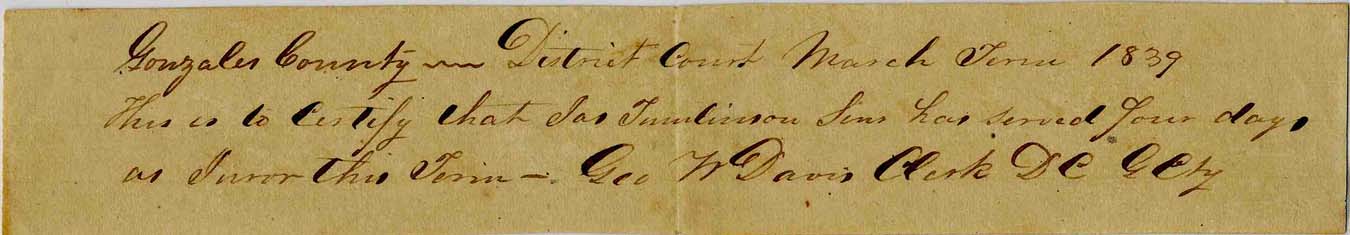 Gonzales County — District Court March Term 1839
This is to Certify that Jas Tumlinson Senr has served four days
as Juror this Term —. Geo W Davis Clerk DC GCty